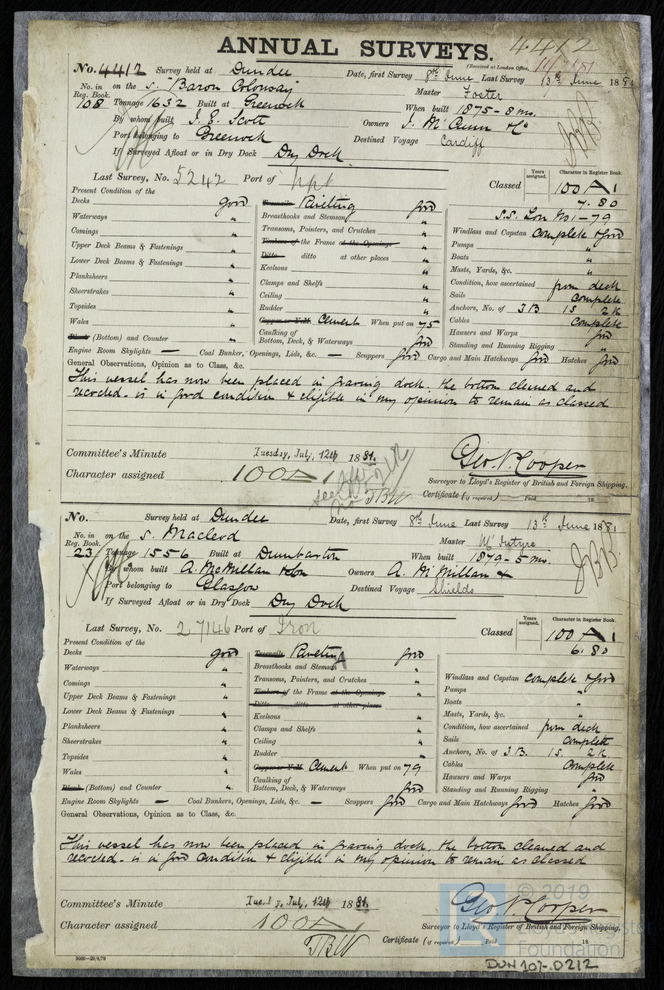 ANNUAL SURVEYS. 4412
(Received at London Office,
No. 4412 Survey held at Dundee Date, first Survey 8th June Last Survey 13th June 1881
No. in Reg. Book. on the S. Baron Colonsay Master Foster
108 Tonnage 1632 Built at Greenock When built 1875-8 mo.
By whom built J. E. Scott Owners J. McCunn & Co
Port belonging to Greenock Destined Voyage Cardiff
If Surveyed Afloat or in Dry Dock Dry Dock
Last Survey, No. 5242 Port of Npt Classed Years assigned. Character in Register Book. 100 A 1
7.80
Present Condition of the
S.S. Lon No 1-79
Decks good Treenails Riveting good
Waterways " Breasthooks and Stemson " Windlass and Capstan complete & good
Comings " Transoms, Pointers, and Crutches " Pumps "
Upper Deck Beams & Fastenings " Timbers of the Frame at the Openings " Boats "
Lower Deck Beams & Fastenings " Ditto ditto at other places " Masts, Yards, &c. "
Planksheers " Keelsons " Condition, how ascertained from deck
Sheerstrakes " Clamps and Shelfs " Sails complete
Topsides " Ceiling " Anchors, No. of 3B 1S 2K
Wales " Rudder " Cables complete
Blank (Bottom) and Counter " Copper or Y.M. Cement When put on 75 Hawsers and Warps good
Caulking of Bottom, Deck, & Waterways good Standing and Running Rigging "
Engine Room Skylights — Coal Bunker, Openings, Lids, &c. — Scuppers good Cargo and Main Hatchways good Hatches good
General Observations, Opinion as to Class, &c.
This vessel has now been placed in graving dock. the bottom cleaned and
recoated. is in good condition & eligible in my opinion to remain as classed
Committee's Minute Tuesday, July, 12th 1881.
Character assigned 100 A 1
Geo. N. Cooper
Surveyor to Lloyd's Register of British and Foreign Shipping.
TBW Certificate (if required) Paid 18
No. Survey held at Dundee Date, first Survey 8th June Last Survey 13th June 1881
No. in Reg. Book. on the S. Macleod Master McIntyre
23 Tonnage 1556 Built at Dumbarton When built 1879-5 mo.
By whom built A. McMillan & Son Owners A. McMillan &
Port belonging to Glasgow Destined Voyage Shields
If Surveyed Afloat or in Dry Dock Dry Dock
Last Survey, No. 27146 Port of Iron Classed Years assigned. Character in Register Book. 100 A 1
6.80
Present Condition of the
Decks good Treenails Riveting good
Waterways " Breasthooks and Stemson " Windlass and Capstan complete & good
Comings " Transoms, Pointers, and Crutches " Pumps "
Upper Deck Beams & Fastenings " Timbers of the Frame at the Openings " Boats "
Lower Deck Beams & Fastenings " Ditto ditto at other places " Masts, Yards, &c. "
Planksheers " Keelsons " Condition, how ascertained from deck
Sheerstrakes " Clamps and Shelfs " Sails complete
Topsides " Ceiling " Anchors, No. of 3B. 1S. 2K
Wales " Rudder " Cables complete
(Bottom) and Counter " Copper or Y.M. Cement When put on 79 Hawsers and Warps good
Caulking of Bottom, Deck, & Waterways good Standing and Running Rigging "
Engine Room Skylights — Coal Bunkers, Openings, Lids, &c. — Scuppers good Cargo and Main Hatchways good Hatches good
General Observations, Opinion as to Class, &c.
This vessel has now been placed in graving dock. the bottom cleaned and
recoated. is in good condition & eligible in my opinion to remain as classed
Committee's Minute Tuesday, July, 12th 1881.
Character assigned 100 A 1
Geo. N. Cooper
Surveyor to Lloyd's Register of British and Foreign Shipping.
TBW Certificate (if required) Paid 18
© 2019
Foundation
DUN 107-0212